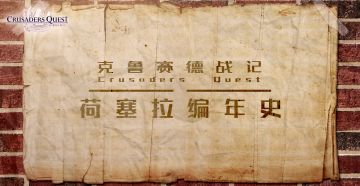 CRUSADERS QUEST
克鲁赛德战记
Crusaders Quest
荷塞拉编年史